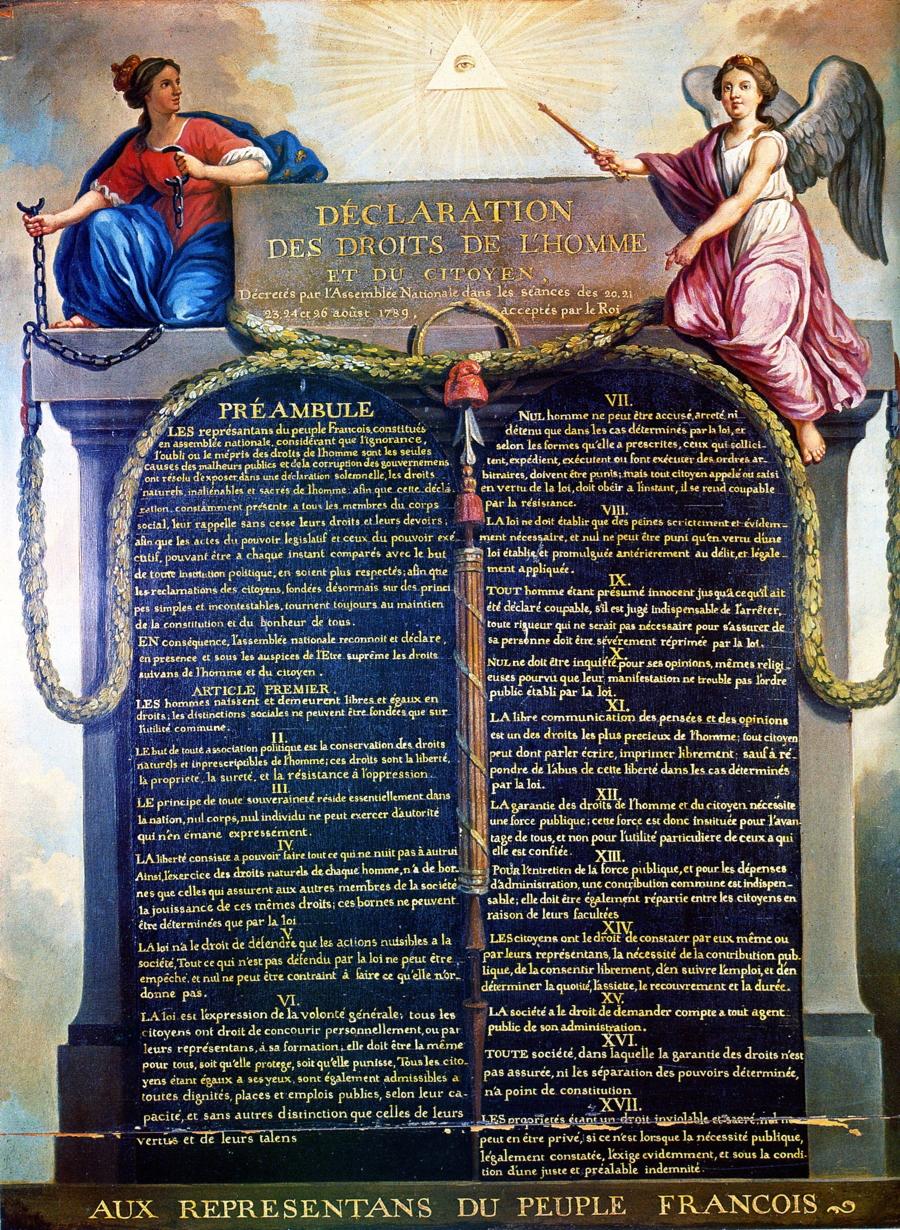 DÉCLARATION
DES DROITS DE L'HOMME
ET DU CITOYEN,
Décretés par l'Assemblée Nationale dans les séances des 20.21
23.24 et 26 aoûst 1789, acceptés par le Roi
PRÉAMBULE
LES représantans du peuple Francois, constitués
en assemblée nationale, considérant que l'ignorance,
l'oubli ou le mépris des droits de l'homme sont les seules
causes des malheurs publics et de la corruption des gouvernemens
ont résolu d'exposer, dans une déclaration solemnelle, les droits
naturels, inaliénables et sacrés de l'homme: afin que cette décla-
ration, constamment présente a tous les membres du corps
social, leur rappelle sans cesse leurs droits et leurs devoirs;
afin que les actes du pouvoir legislatif et ceux du pouvoir exé-
cutif, pouvant être à chaque instant comparés avec le but
de toute institution politique, en soient plus respectés; afin que
les reclamations des citoyens, fondées désormais sur des princi
pes simples et incontestables, tournent toujours au maintien
de la constitution et du bonheur de tous.
EN conséquence, l'assemblée nationale reconnoit et déclare,
en presence et sous les auspices de l'Etre suprême les droits
suivans de l'homme et du citoyen.
ARTICLE PREMIER.
LES hommes naissent et demeurent libres et égaux en
droits; les distinctions sociales ne peuvent être fondées que sur
l'utilité commune.
II.
LE but de toute association politique est la conservation des droits
naturels et inprescriptibles de l'homme; ces droits sont la liberté,
la propriete, la sureté, et la résistance à l'oppression.
III.
LE principe de toute souveraineté réside essentiellement dans
la nation, nul corps, nul individu ne peut exercer d'autorité
qui n'en émane expressément.
IV.
LA liberté consiste a pouvoir faire tout ce qui ne nuit pas à autrui
Ainsi, l'exercice des droits naturels de chaque homme, n'a de bor-
nes que celles qui assurent aux autres membres de la société
la jouissance de ces mêmes droits; ces bornes ne peuvent
être déterminées que par la loi
V.
LA loi n'a le droit de défendre que les actions nuisibles a la
société, Tout ce qui n'est pas défendu par la loi ne peut être
empêche, et nul ne peut être contraint à faire ce qu'elle n'or-
donne pas.
VI.
LA loi est l'expression de la volonté générale; tous les
citoyens ont droit de concourir personnellement, ou par
leurs représentans, à sa formation; elle doit être la même
pour tous, soit qu'elle protege, soit qu'elle punisse, Tous les cito-
yens étant égaux a ses yeux, sont également admissibles a
toutes dignités, places et emplois publics, selon leur ca-
pacité, et sans autres distinction que celles de leurs
vertus et de leurs talens
VII.
NUL homme ne peut être accusé, arreté, ni
détenu que dans les cas déterminés par la loi, et
selon les formes qu'elle a prescrites, ceux qui sollici-
tent, expédient, exécutent ou font exécuter des ordres ar-
bitraires, doivent être punis; mais tout citoyen appelé ou saisi
en vertu de la loi, doit obéir a l'instant, il se rend coupable
par la résistance.
VIII.
LA loi ne doit établir que des peines strictement et évidem-
ment nécessaire, et nul ne peut être puni qu'en vertu d'une
loi établie et promulguée antérierement au délit, et légale-
ment appliquée.
IX.
TOUT homme étant présumé innocent jusqu'a ce qu'il ait
été déclaré coupable, s'il est jugé indispensable de l'arrêter,
toute rigueur qui ne serait pas nécessaire pour s'assurer de
sa personne doit être sévèrement réprimée par la loi.
X.
NUL ne doit être inquiété pour ses opinions, mêmes religi-
euses pourvu que leur manifestation ne trouble pas l'ordre
public établi par la loi.
XI.
LA libre communication des pensées et des opinions
est un des droits les plus precieux de l'homme; tout citoyen
peut dont parler écrire, imprimer librement: sauf à ré-
pondre de l'abus de cette liberté dans les cas déterminés
par la loi.
XII.
LA garantie des droits de l'homme et du citoyen nécessite
une force publique; cette force est donc instituée pour l'avan-
tage de tous, et non pour l'utilité particuliere de ceux a qui
elle est confiée.
XIII.
POUR l'entretien de la force publique, et pour les dépenses
d'administration, une contribution commune est indispen-
sable; elle doit être également répartie entre les citoyens en
raison de leurs facultées
XIV.
LES citoyens ont le droit de constater par eux même ou
par leurs représentans, la nécessité de la contribution pub-
lique, de la consentir librement, d'en suivre l'emploi, et d'en
déterminer la quotité, l'assiette, le recouvrement et la durée.
XV.
LA société a le droit de demander compte a tout agent
public de son administration.
XVI.
TOUTE société, dans laquelle la garantie des droits n'est
pas assurée, ni les séparation des pouvoirs déterminée,
n'a point de constitution
XVII.
LES propriétés étant un droit inviolable et sacré, nul ne
peut en être privé, si ce n'est lorsque la nécessité publique,
légalement constatée, l'exige evidemment, et sous la condi-
tion d'une juste et préalable indemnité.
AUX REPRESENTANS DU PEUPLE FRANCOIS